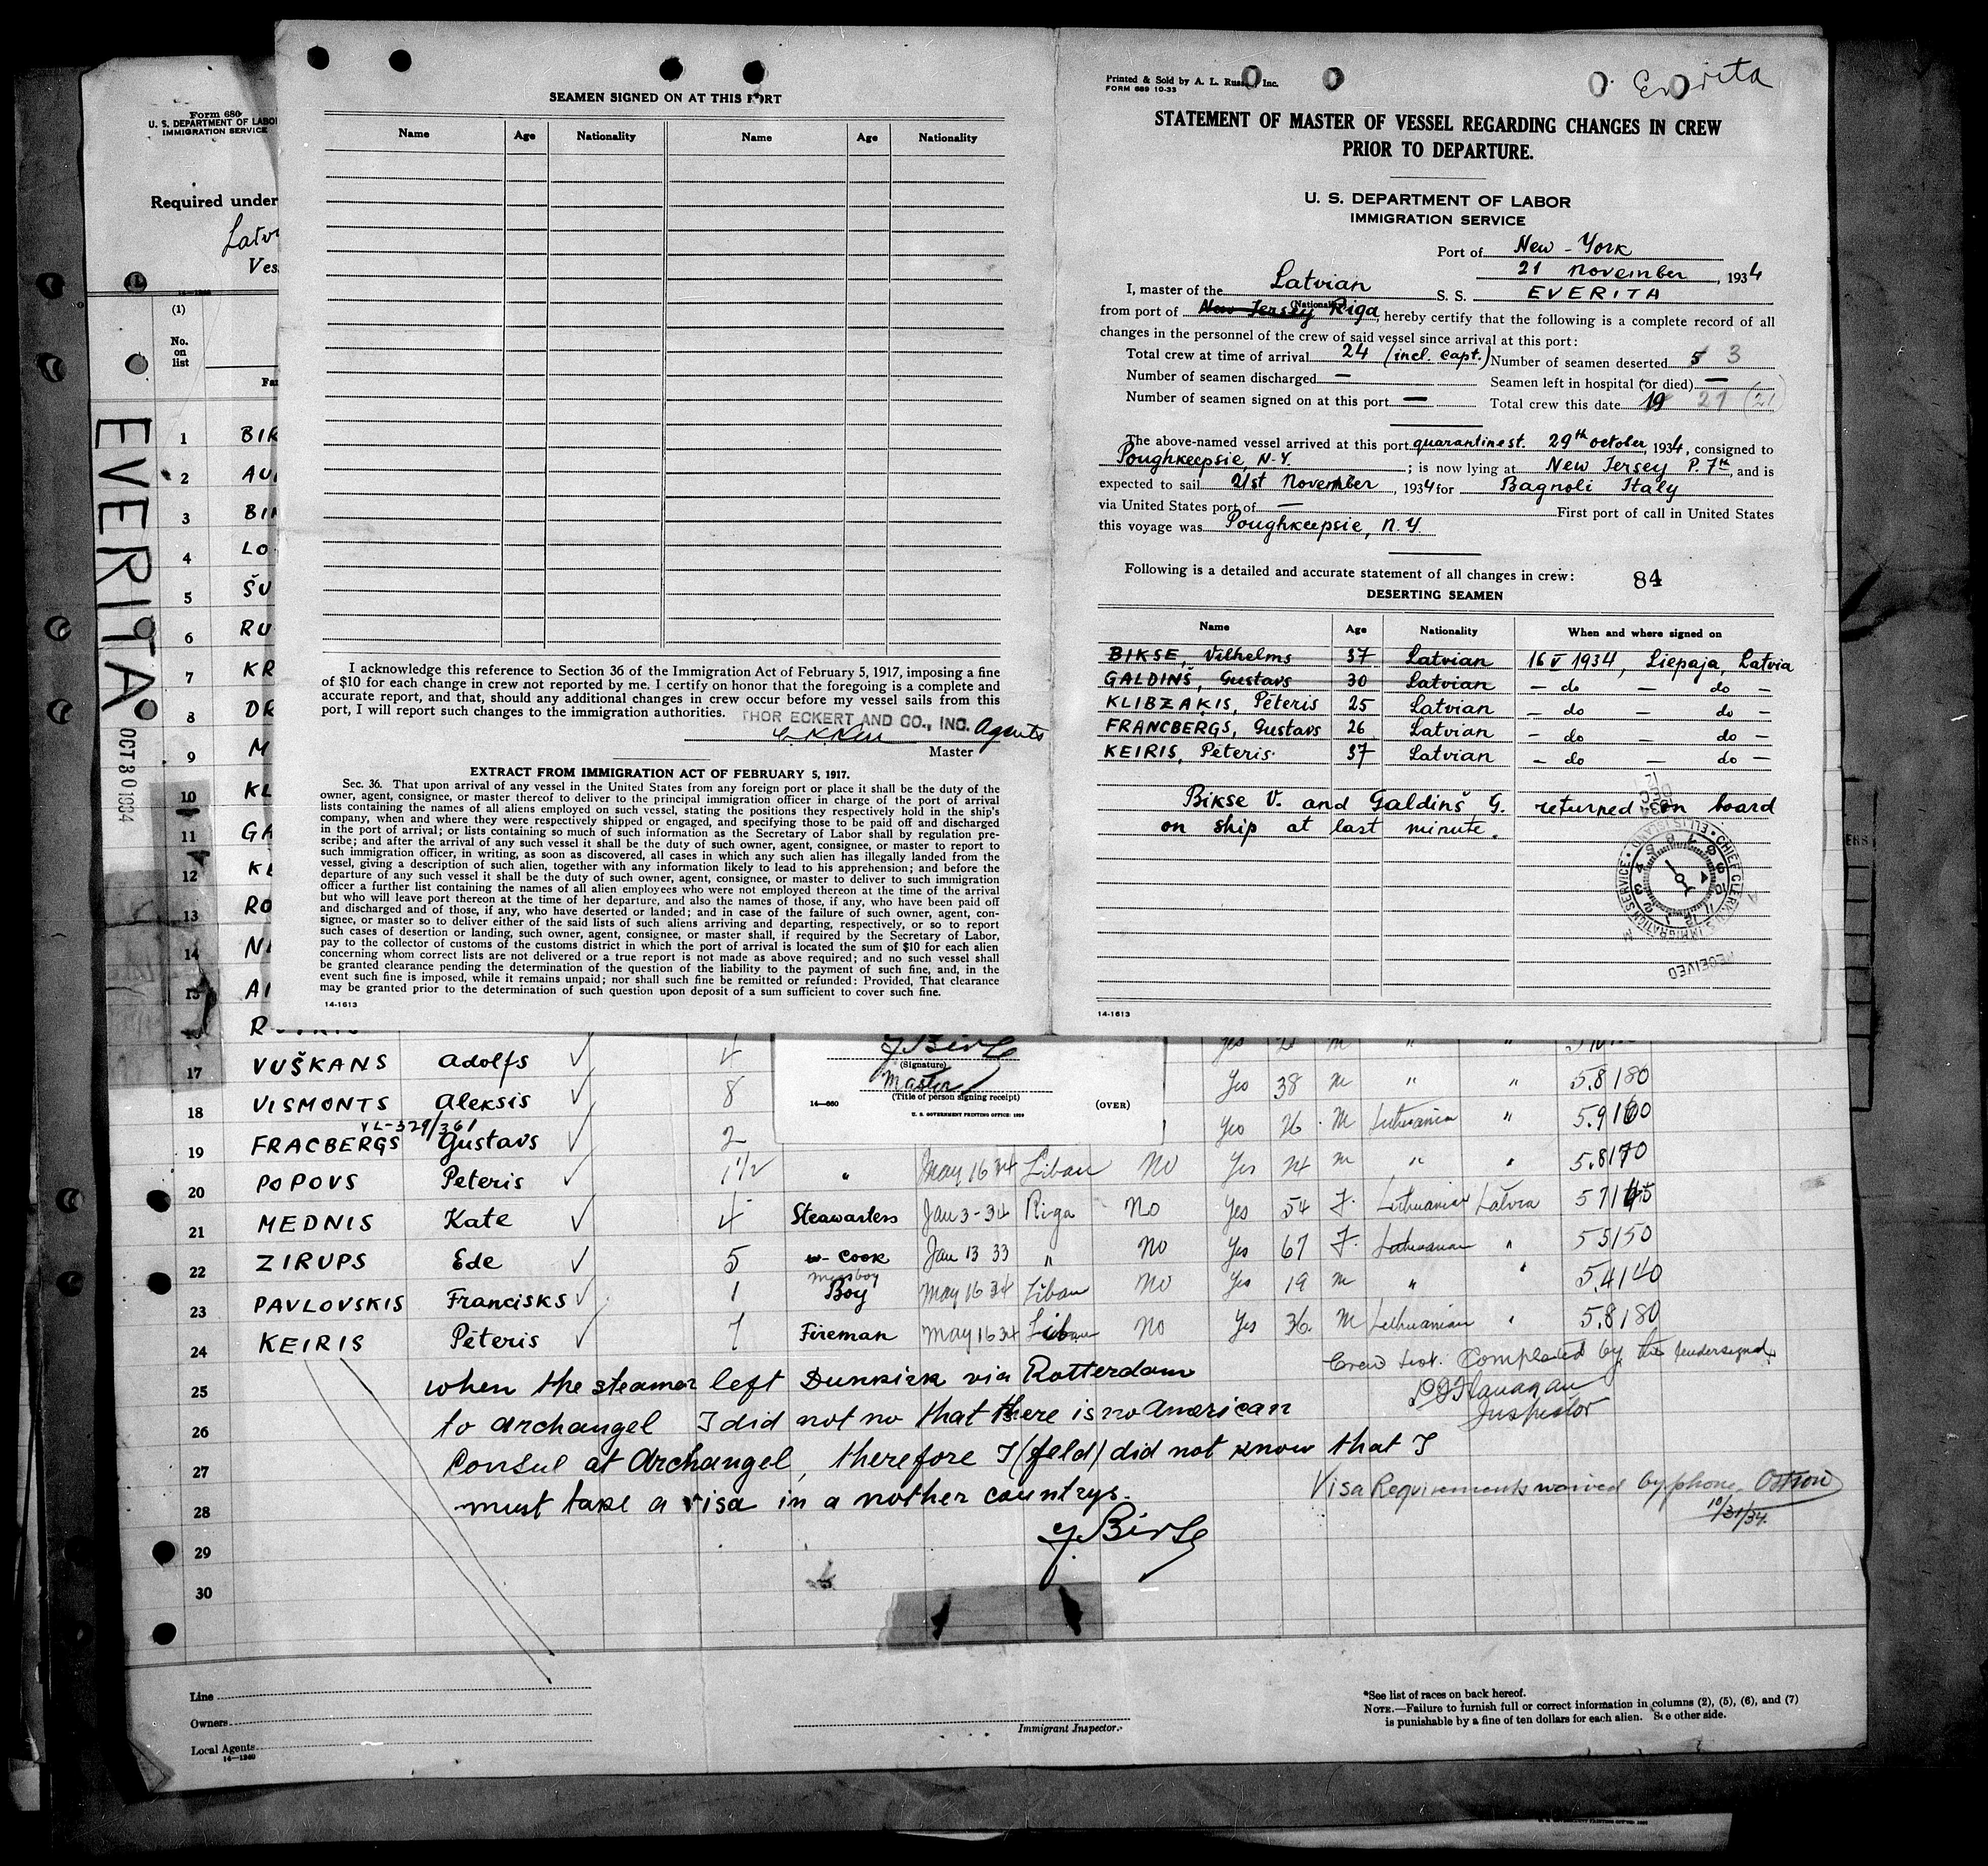 Form 680
U. S. DEPARTMENT OF LABO
IMMIGRATION SERVICE
Required under
Latv
Ves
(1)
No.
on
list
Fa
EVERITA
OCT 30 1934
1 BIR
2 AU
3 BI
4 LO
5 ŠU
6 RU
7 KR
8 DR
9 M
10 KL
11 GA
12 KE
13 RO
14 N
15 A
16 R
SEAMEN SIGNED ON AT THIS PORT
Name Age Nationality Name Age Nationality
I acknowledge this reference to Section 36 of the Immigration Act of February 5, 1917, imposing a fine
of $10 for each change in crew not reported by me. I certify on honor that the foregoing is a complete and
accurate report, and that, should any additional changes in crew occur before my vessel sails from this
port, I will report such changes to the immigration authorities.
THOR ECKERT AND CO., INC. Agents
Master
EXTRACT FROM IMMIGRATION ACT OF FEBRUARY 5, 1917.
Sec. 36. That upon arrival of any vessel in the United States from any foreign port or place it shall be the duty of the
owner, agent, consignee, or master thereof to deliver to the principal immigration officer in charge of the port of arrival
lists containing the names of all aliens employed on such vessel, stating the positions they respectively hold in the ship's
company, when and where they were respectively shipped or engaged, and specifying those to be paid off and discharged
in the port of arrival; or lists containing so much of such information as the Secretary of Labor shall by regulation pre-
scribe; and after the arrival of any such vessel it shall be the duty of such owner, agent, consignee, or master to report to
such immigration officer, in writing, as soon as discovered, all cases in which any such alien has illegally landed from the
vessel, giving a description of such alien, together with any information likely to lead to his apprehension; and before the
departure of any such vessel it shall be the duty of such owner, agent, consignee, or master to deliver to such immigration
officer a further list containing the names of all alien employees who were not employed thereon at the time of the arrival
but who will leave port thereon at the time of her departure, and also the names of those, if any, who have been paid off
and discharged and of those, if any, who have deserted or landed; and in case of the failure of such owner, agent, con-
signee, or master so to deliver either of the said lists of such aliens arriving and departing, respectively, or so to report
such cases of desertion or landing, such owner, agent, consignee, or master shall, if required by the Secretary of Labor,
pay to the collector of customs of the customs district in which the port of arrival is located the sum of $10 for each alien
concerning whom correct lists are not delivered or a true report is not made as above required; and no such vessel shall
be granted clearance pending the determination of the question of the liability to the payment of such fine, and, in the
event such fine is imposed, while it remains unpaid; nor shall such fine be remitted or refunded: Provided, That clearance
may be granted prior to the determination of such question upon deposit of a sum sufficient to cover such fine.
14-1613
Printed & Sold by A. L. Russ Inc.
FORM 689 10-33
Everita
STATEMENT OF MASTER OF VESSEL REGARDING CHANGES IN CREW
PRIOR TO DEPARTURE.
U. S. DEPARTMENT OF LABOR
IMMIGRATION SERVICE
Port of New - York
21 november, 1934
I, master of the Latvian S. S. EVERITA
(Nationality)
from port of New Jersey Riga, hereby certify that the following is a complete record of all
changes in the personnel of the crew of said vessel since arrival at this port:
Total crew at time of arrival 24 (incl. capt.) Number of seamen deserted 5 3
Number of seamen discharged — Seamen left in hospital (or died) —
Number of seamen signed on at this port — Total crew this date 19 21 (21
The above-named vessel arrived at this port quarantine st. 29th october, 1934, consigned to
Poughkeepsie, N-Y. ; is now lying at New Jersey P. 7th, and is
expected to sail 21st November, 1934 for Bagnoli Italy
via United States port of — First port of call in United States
this voyage was Poughkeepsie, N.Y
Following is a detailed and accurate statement of all changes in crew: 84
DESERTING SEAMEN
Name Age Nationality When and where signed on
BIKSE, Vilhelms 37 Latvian 16 V 1934, Liepaja, Latvia
GALDIŅŠ, Gustavs 30 Latvian — do — do —
KLIBZAKIS, Pēteris 25 Latvian — do — do —
FRANCBERGS, Gustavs 26 Latvian — do — do —
KEIRIS, Pēteris 37 Latvian — do — do —
Bikse V. and Galdiņš G. returned on board
on ship at last minute.
RECEIVED
CHIEF CLERK
U.S. IMMIGRATION SERVICE
ELLIS ISLAND
14-1613
J Birse
(Signature)
Master
(Title of person signing receipt)
14-660 (OVER)
U. S. GOVERNMENT PRINTING OFFICE: 1929
17 VUŠKANS Adolfs ✓ 4 Yes 38 m " " 5.8 180
18 VISMONTS Aleksis ✓ 8 Yes 26 M Lithuania " 5.9 160
VL-329/361
19 FRACBERGS Gustavs ✓ 2 Yes 24 m " " 5.8 170
20 POPOVS Pēteris ✓ 1 1/2 " May 16 34 Libau No
21 MEDNIS Kate ✓ 4 Steawarters Jan 3-34 Riga No Yes 54 F. Lithuanian Latvia 5 7 145
22 ZIRUPS Ede ✓ 5 w- cook Jan 13 33 " No Yes 67 F. Lithuanian " 5 5 150
messboy
23 PAVLOVSKIS Francisks ✓ 1 Boy May 16 34 Libau No Yes 19 m " " 5.4 140
24 KEIRIS Pēteris ✓ 7 Fireman May 16 34 Libau No Yes 36. M Lithuanian " 5.8 180
Crew List Completed by the Undersigned.
Flanagan
Inspector
25 when the steamer left Dunkirk via Rotterdam
26 to archangel I did not no that there is no American
27 Consul at Archangel, therefore I (feld) did not know that I
28 must take a visa in a nother countrys.
J Birse
Visa Requirements waived by phone.
10/31/34.
29
30
Line
Owners
Local Agents
14-1240
Immigrant Inspector.
*See list of races on back hereof.
NOTE.—Failure to furnish full or correct information in columns (2), (5), (6), and (7)
is punishable by a fine of ten dollars for each alien. See other side.